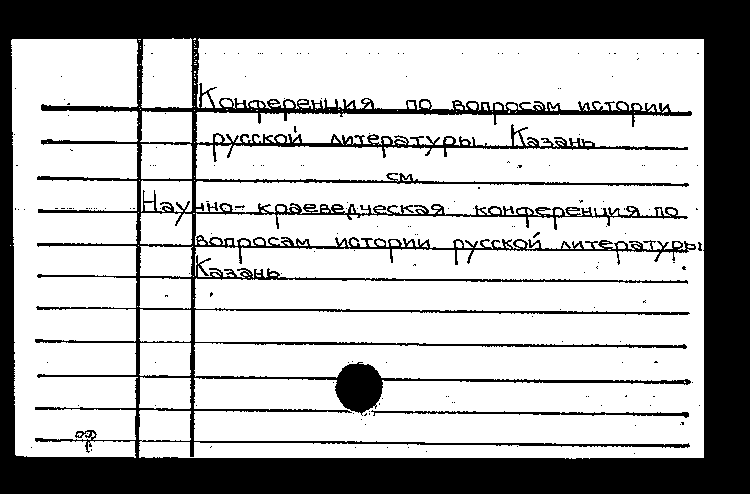 Конференция по вопросам истории
русской литературы. Казань
см.
Научно-краеведческая конференция по
вопросам истории русской литературы
Казань